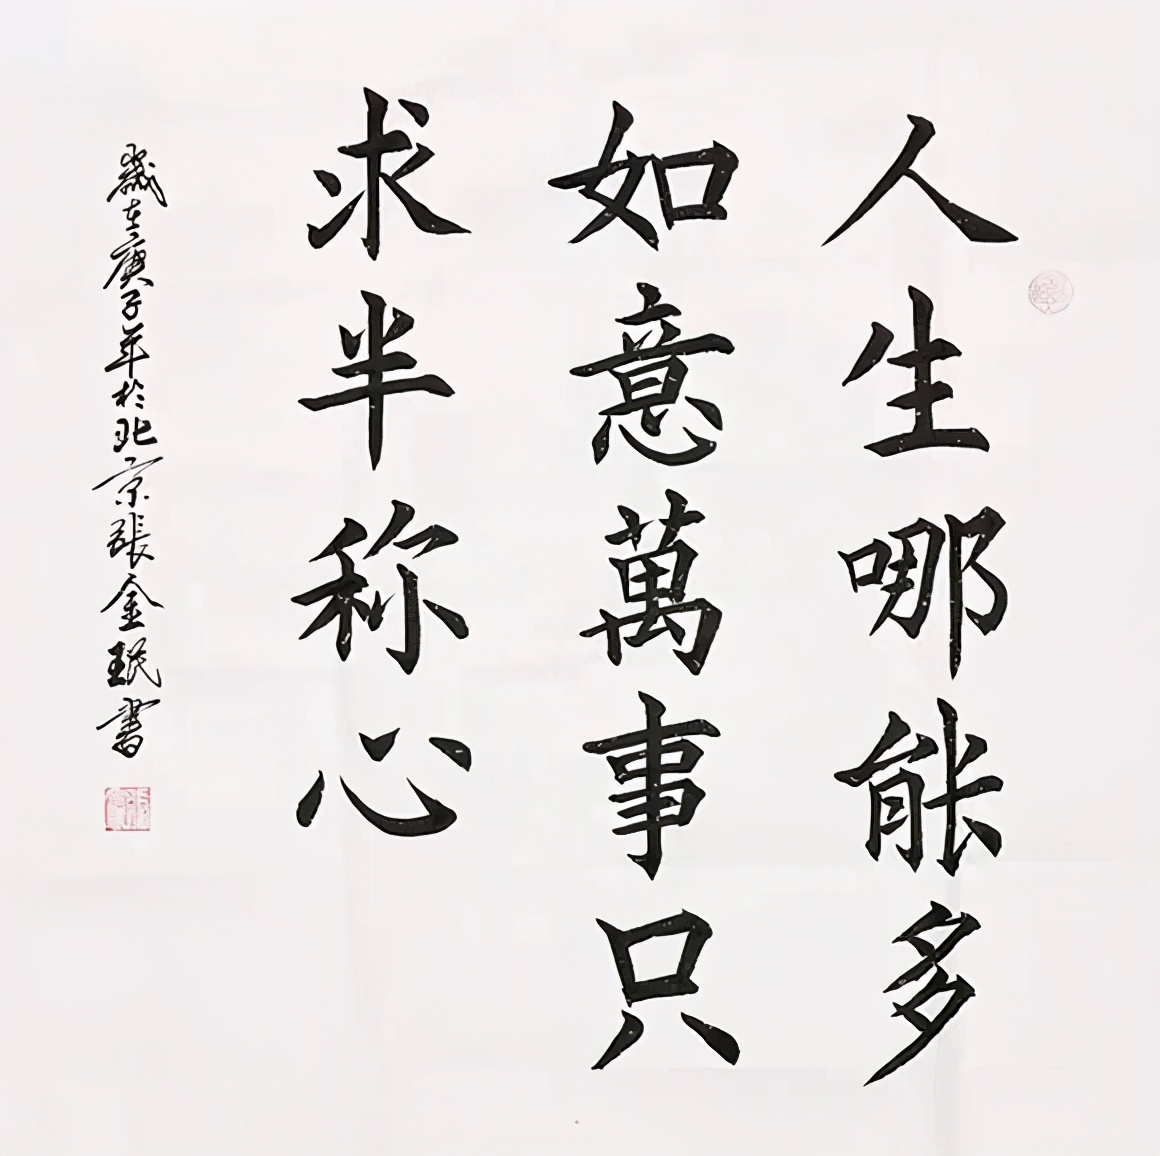 人生哪能多
如意萬事只
求半称心
歲在庚子年於北京張金珉書